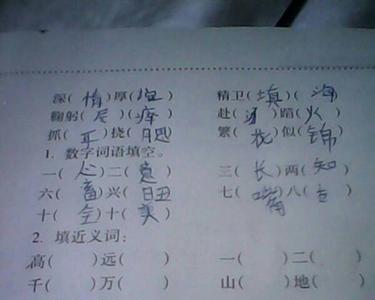 深( 情 )厚( 谊 )  精卫( 填 )( 海 )
鞠躬( 尽 )( 瘁 )  赴( 汤 )蹈( 火 )
抓( 耳 )挠( 腮 )  繁( 花 )似( 锦 )
1. 数字词语填空。
一( 心 )二( 意 )  三( 长 )两( 短 )
六( 畜 )兴( 旺 )  七( 嘴 )八( 舌 )
十( 全 )十( 美 )
2. 填近义词:
高( )远( )  一( )二( )
千( )万( )  山( )地( )